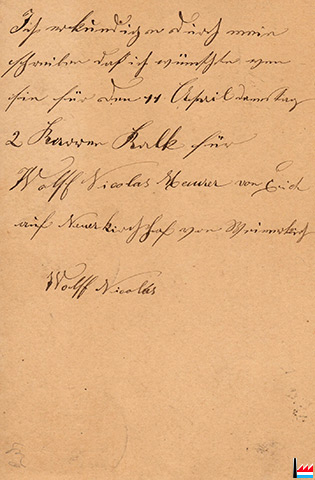 Ich erkundige durch mein
schreiben daß ich wünschte von
sie für den 11 April damstag
2 Karren Kalk für
Wolff Nicolas Maurer von Eich
auf Neuerkirchhof von Weimerkirch
Wolff Nicolas